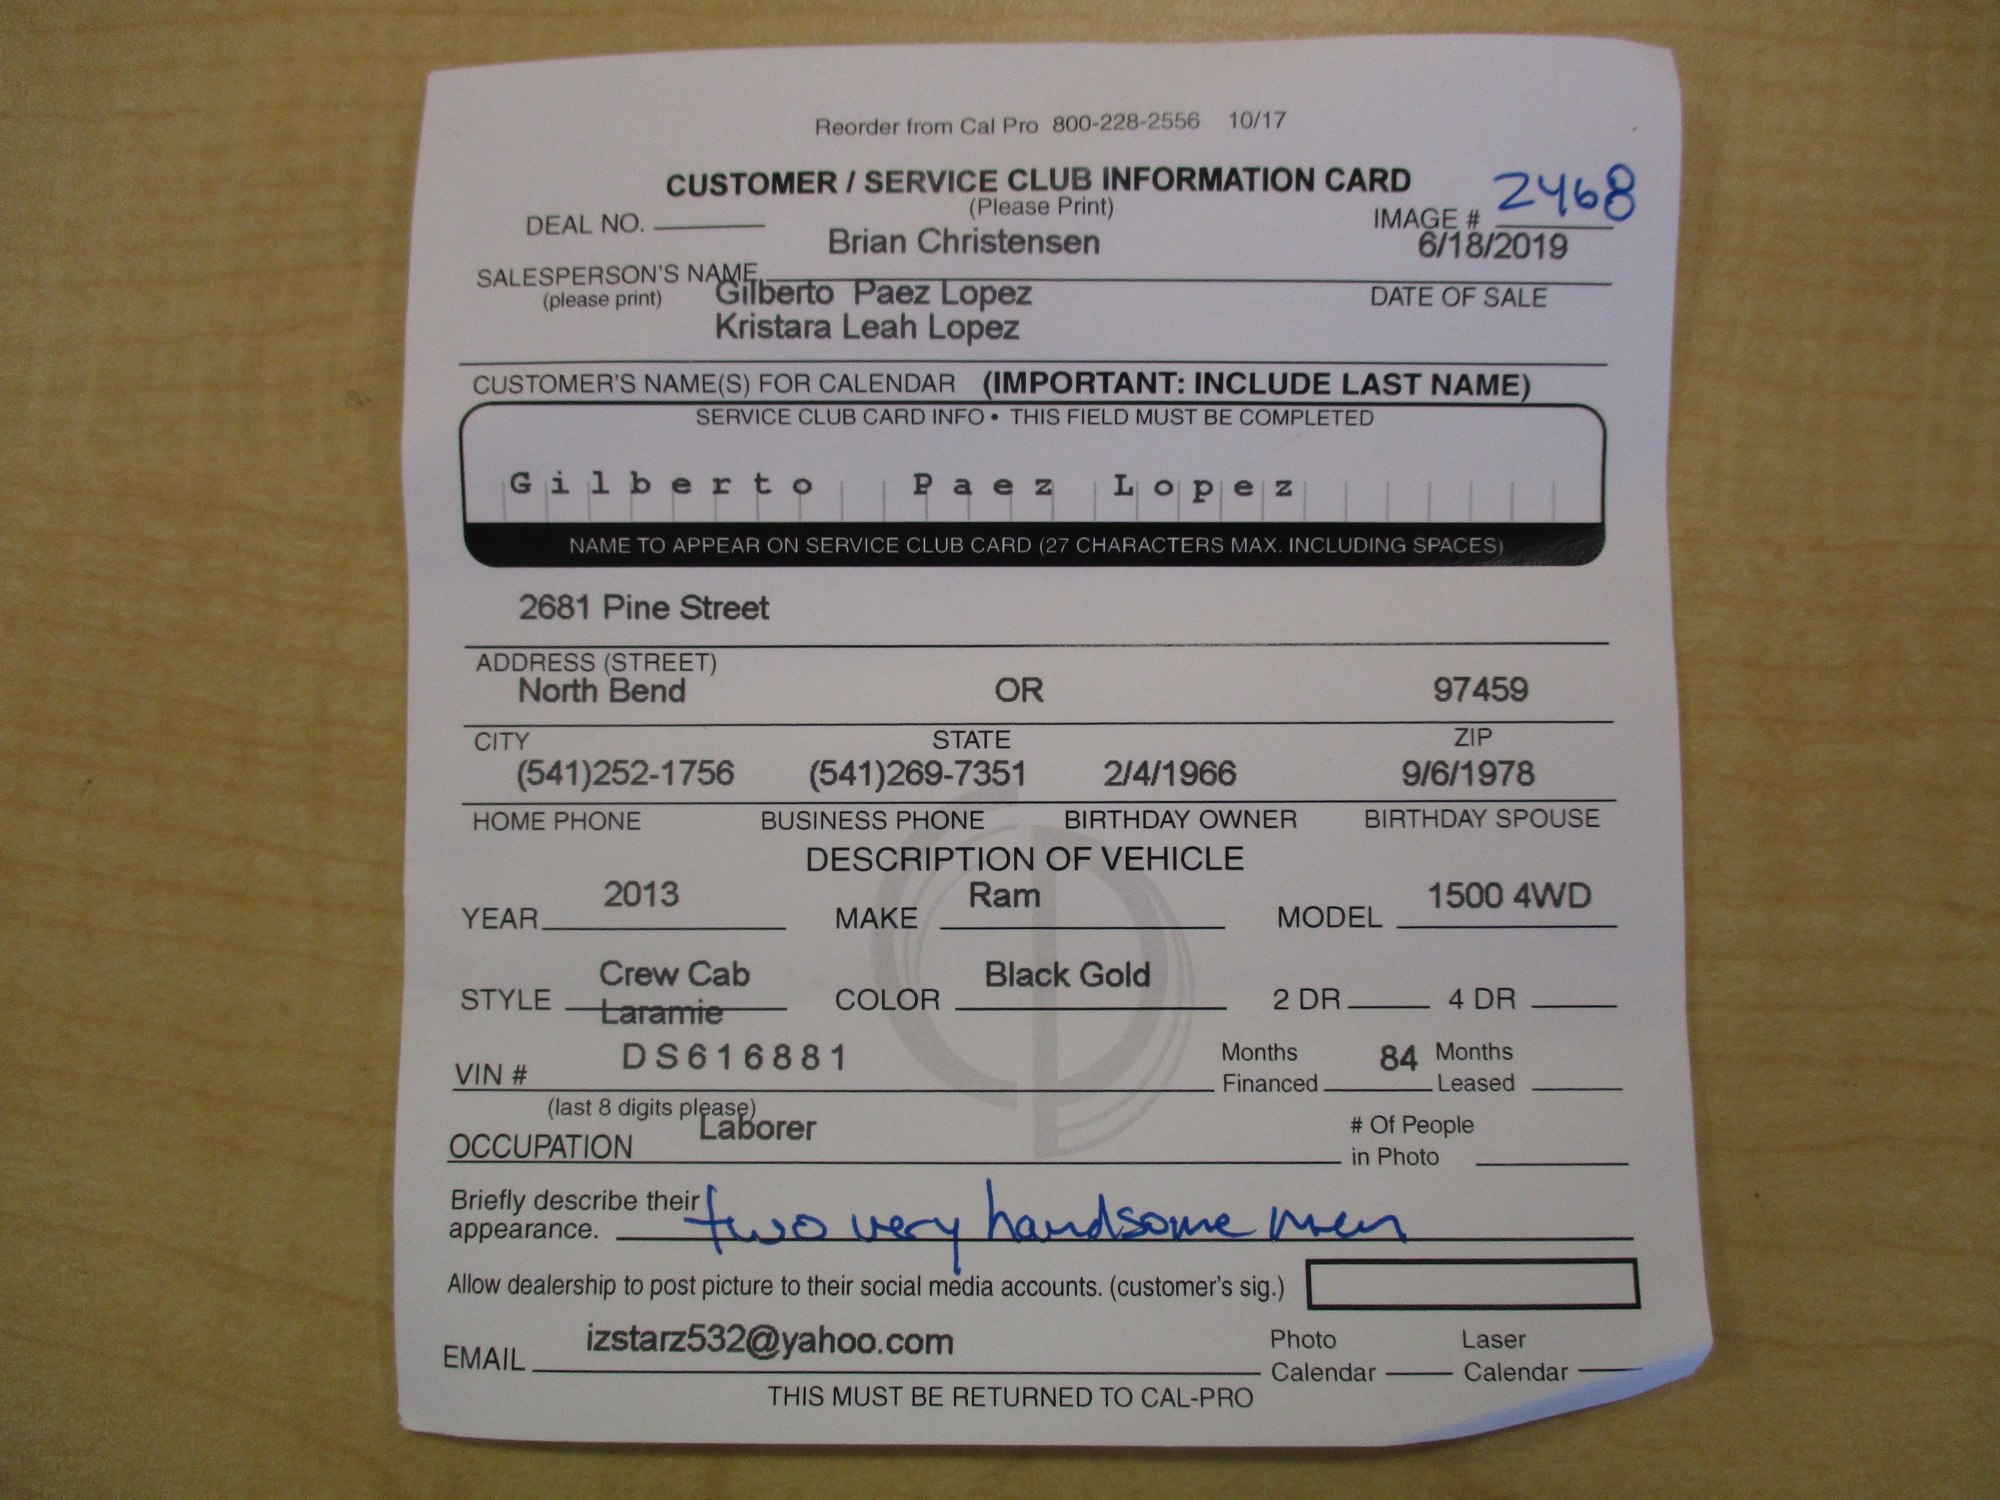 Reorder from Cal Pro 800-228-2556 10/17
CUSTOMER / SERVICE CLUB INFORMATION CARD
(Please Print)
DEAL NO. IMAGE # 2468
Brian Christensen 6/18/2019
SALESPERSON'S NAME DATE OF SALE
(please print)
Gilberto Paez Lopez
Kristara Leah Lopez
CUSTOMER'S NAME(S) FOR CALENDAR (IMPORTANT: INCLUDE LAST NAME)
SERVICE CLUB CARD INFO • THIS FIELD MUST BE COMPLETED
Gilberto Paez Lopez
NAME TO APPEAR ON SERVICE CLUB CARD (27 CHARACTERS MAX. INCLUDING SPACES)
2681 Pine Street
ADDRESS (STREET)
North Bend OR 97459
CITY STATE ZIP
(541)252-1756 (541)269-7351 2/4/1966 9/6/1978
HOME PHONE BUSINESS PHONE BIRTHDAY OWNER BIRTHDAY SPOUSE
DESCRIPTION OF VEHICLE
YEAR 2013 MAKE Ram MODEL 1500 4WD
STYLE Crew Cab COLOR Black Gold 2 DR 4 DR
Laramie
VIN # DS616881 Months Financed 84 Months Leased
(last 8 digits please)
OCCUPATION Laborer # Of People in Photo
Briefly describe their
appearance. two very handsome men
Allow dealership to post picture to their social media accounts. (customer's sig.)
EMAIL izstarz532@yahoo.com Photo Calendar Laser Calendar
THIS MUST BE RETURNED TO CAL-PRO